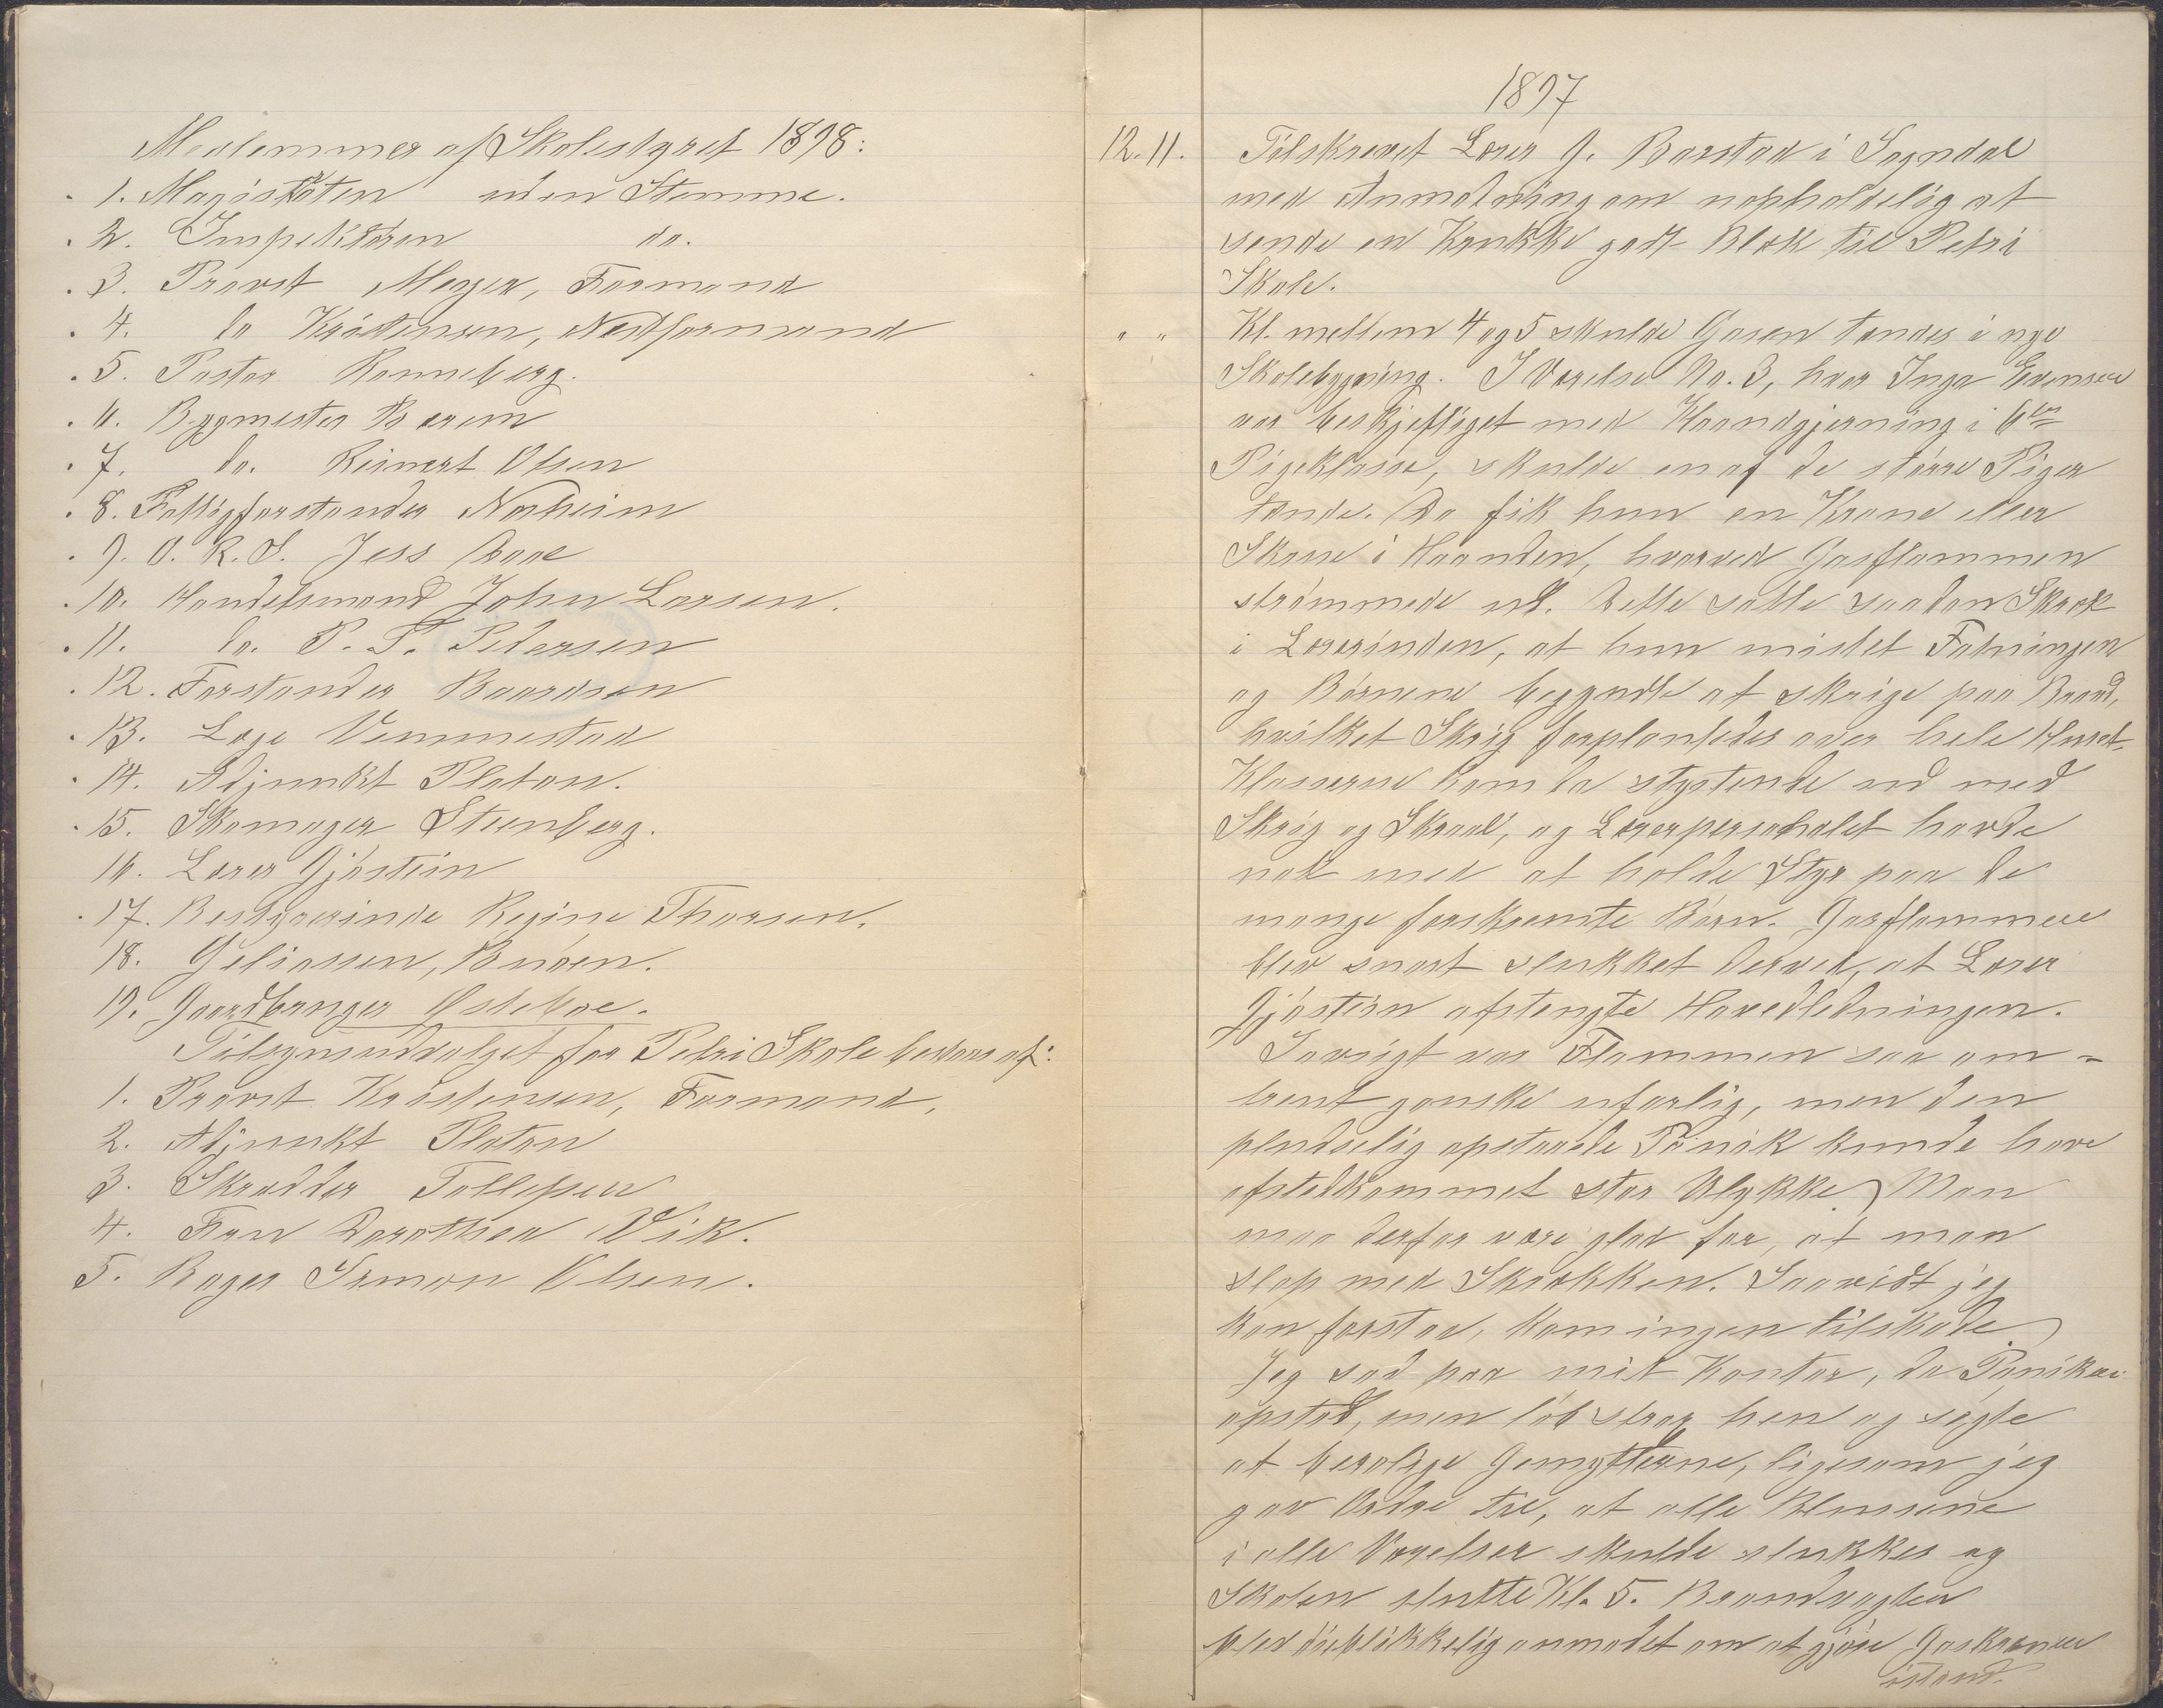 Medlemmer af Skolestyret 1898:
1. Magistraten uden Stemme.
2. Inspektören do.
3. Provst Meyer, Formand
4. do Kristensen, Næstformand
5. Pastor Ronneberg.
6. Bygmester Bærem
7. do. Reinert Olsen
8. Fattigforstander Norheim
9. O. R. S. Jess
10. Handelsmand John Larsen.
11. do. P. T. Pedersen
12. Forstander Baardsen
13. Læge Vemmestad
14. Adjunkt Platou.
15. Skomager Steenberg.
16. Lærer Gjöstein
17. Bestyrerinde Regine Thorsen.
18. Geliassen, Buöen.
19. Gaardbruger Østeboe.
Tilsynsudvalget for Petri Skole bestaar af:
1. Provst Kristensen, Formand,
2. Adjunkt Platou
3. Skrædder Tollefsen
4. Fru Dorothea Vik.
5. Bager Simon Olsen.
1897
12. 11. Tilskrevet Lærer G. Barstad i Sogndal
med Anmodning om uopholdelig at
sende en Krukke godt Blæk til Petri
Skole.
" " Kl. mellem 4 og 5 skulde Gasen tændes i nye
Skolebygning. I Værelse No. 3, hvor Inga Evensen
var beskjeftiget med Haandgjerning i 6te
Pigeklasse, skulde en af de större Piger
tænde. Da fik hun en Krane eller
Skrue i Haanden, hvorved Gasflammen
strömmede ud. Dette satte saadan Skræk
i Lærerinden, at hun mistet Fatningen
og Börnene begyndte at skrige paa Brand,
hvilket Skrig forplantedes over hele Huset.
Klasserne kom da styrtende ud med
Skrig og Skraal, og Lærerpersonalet havde
nok med at holde Styr paa de
mange forskræmte Börn. Gasflammen
blev snart slukket derved, at Lærer
Gjöstein afstengte Hovedledningen.
Forövrigt var Flammen saa om-
trent ganske ufarlig, men den
pludselig opstaaede Panik kunde have
afstedkommet stor Ulykke. Man
maa derfor være glad for, at man
slap med Skrækken. Saavidt jeg
kan forstaa, kom ingen tilskade.
Jeg sad paa mit Kontor, da Paniken
opstod, men löb strax hen og sögte
at berolige Gemytterne, ligesom jeg
gav Ordre til, at alle Blussene
i alle Værelser skulde slukkes og
Skolen slutte Kl. 5. Brandvagten
blev öieblikkelig anmodet om at gjöre Gaskranen
istand.